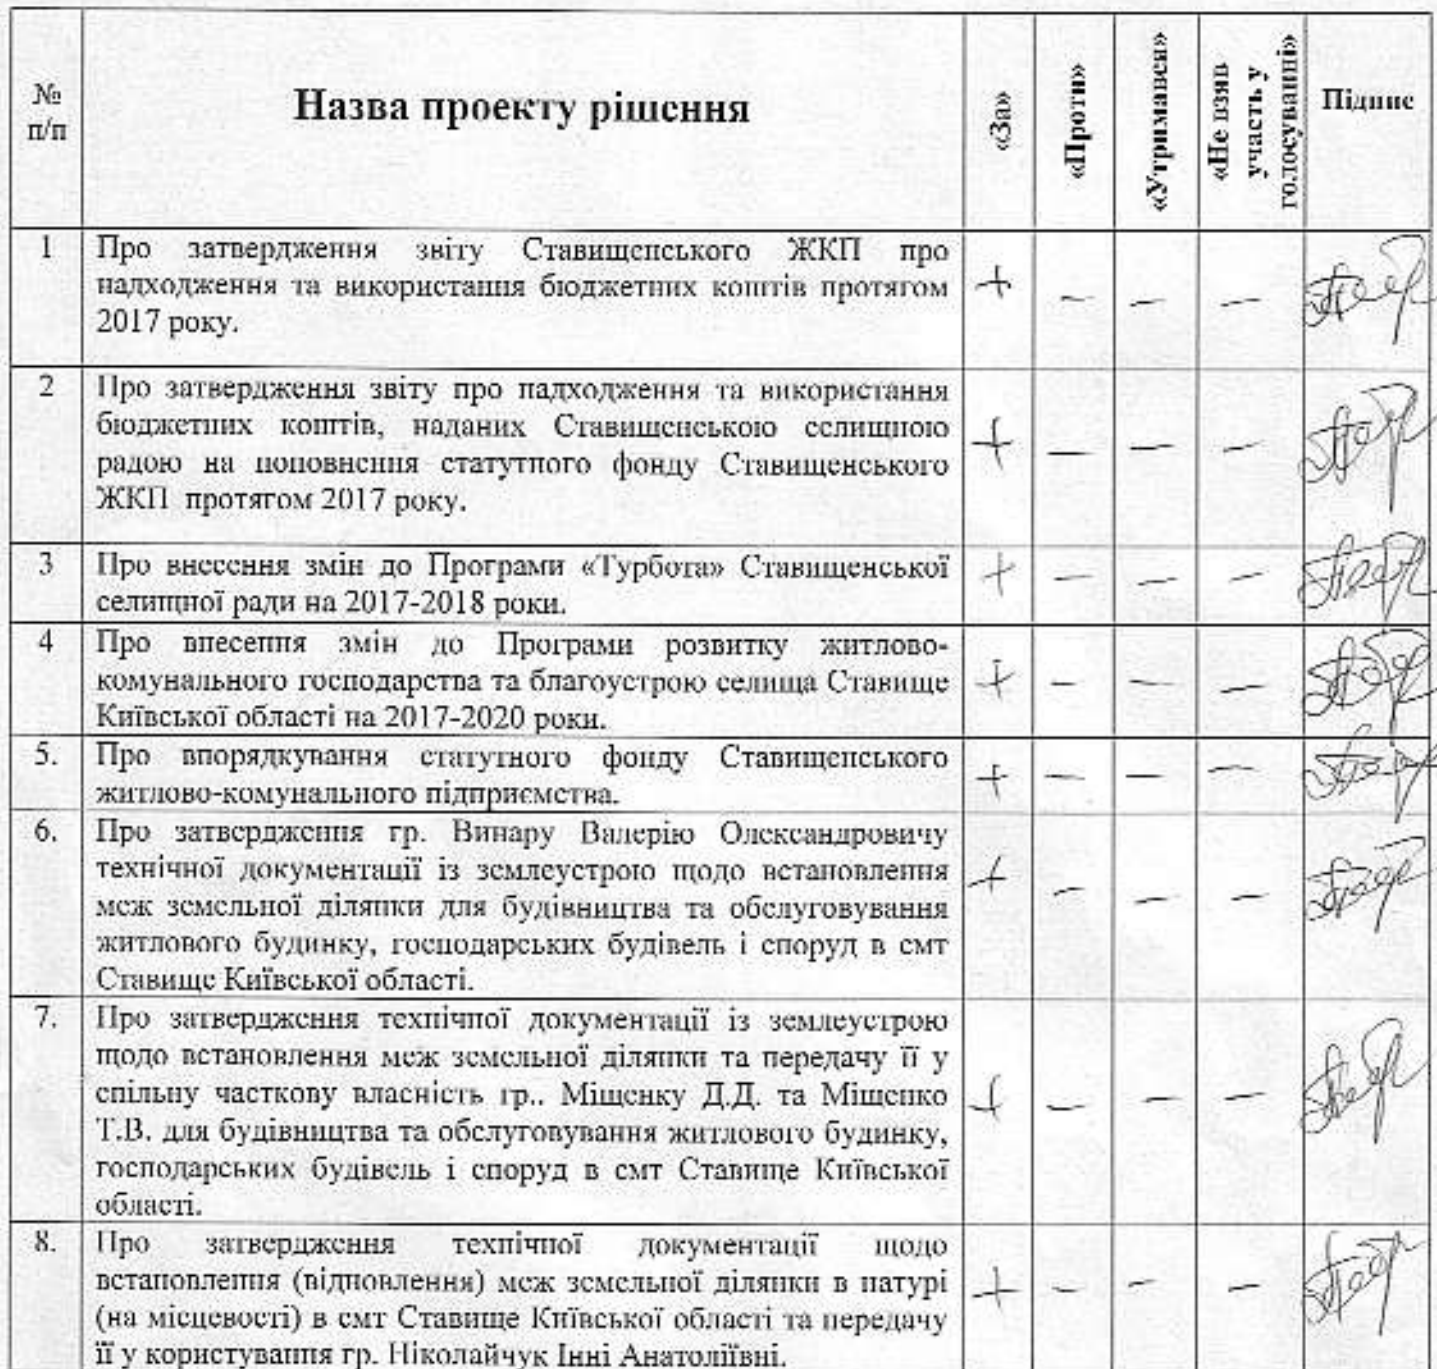 №
п/п
Назва проекту рішення
«За»
«Проти»
«Утримався»
«Не взяв
участь у
голосуванні»
Підпис
1
Про затвердження звіту Ставищенського ЖКП про
надходження та використання бюджетних коштів протягом
2017 року.
+ – – –
2
Про затвердження звіту про надходження та використання
бюджетних коштів, наданих Ставищенською селищною
радою на поповнення статутного фонду Ставищенського
ЖКП протягом 2017 року.
+ – – –
3
Про внесення змін до Програми «Турбота» Ставищенської
селищної ради на 2017-2018 роки.
+ – – –
4
Про внесення змін до Програми розвитку житлово-
комунального господарства та благоустрою селища Ставище
Київської області на 2017-2020 роки.
+ – – –
5.
Про впорядкування статутного фонду Ставищенського
житлово-комунального підприємства.
+ – – –
6.
Про затвердження гр. Винару Валерію Олександровичу
технічної документації із землеустрою щодо встановлення
меж земельної ділянки для будівництва та обслуговування
житлового будинку, господарських будівель і споруд в смт
Ставище Київської області.
+ – – –
7.
Про затвердження технічної документації із землеустрою
щодо встановлення меж земельної ділянки та передачу її у
спільну часткову власність гр.. Міщенку Д.Д. та Міщенко
Т.В. для будівництва та обслуговування житлового будинку,
господарських будівель і споруд в смт Ставище Київської
області.
+ – – –
8.
Про затвердження технічної документації щодо
встановлення (відновлення) меж земельної ділянки в натурі
(на місцевості) в смт Ставище Київської області та передачу
її у користування гр. Ніколайчук Інні Анатоліївні.
+ – – –